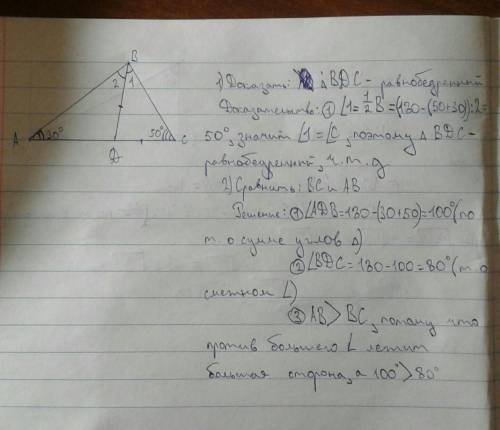 B
2 1
A 30° 50° C
D
1) Доказать: △BDC – равнобедренный
Доказательство: ① ∠1=½B=(180-(50+30)):2=
50°, значит ∠1=∠C, поэтому △BDC–
равнобедренный, ч.т.д
2) Сравнить: BC и AB
Решение: ① ∠ADB=180-(30+50)=100° (по
т. о сумме углов △)
② ∠BDC=180-100=80° (т. о
смежном ∠)
③ AB>BC, потому что
против большего ∠ лежит
большая сторона, а 100°>80°